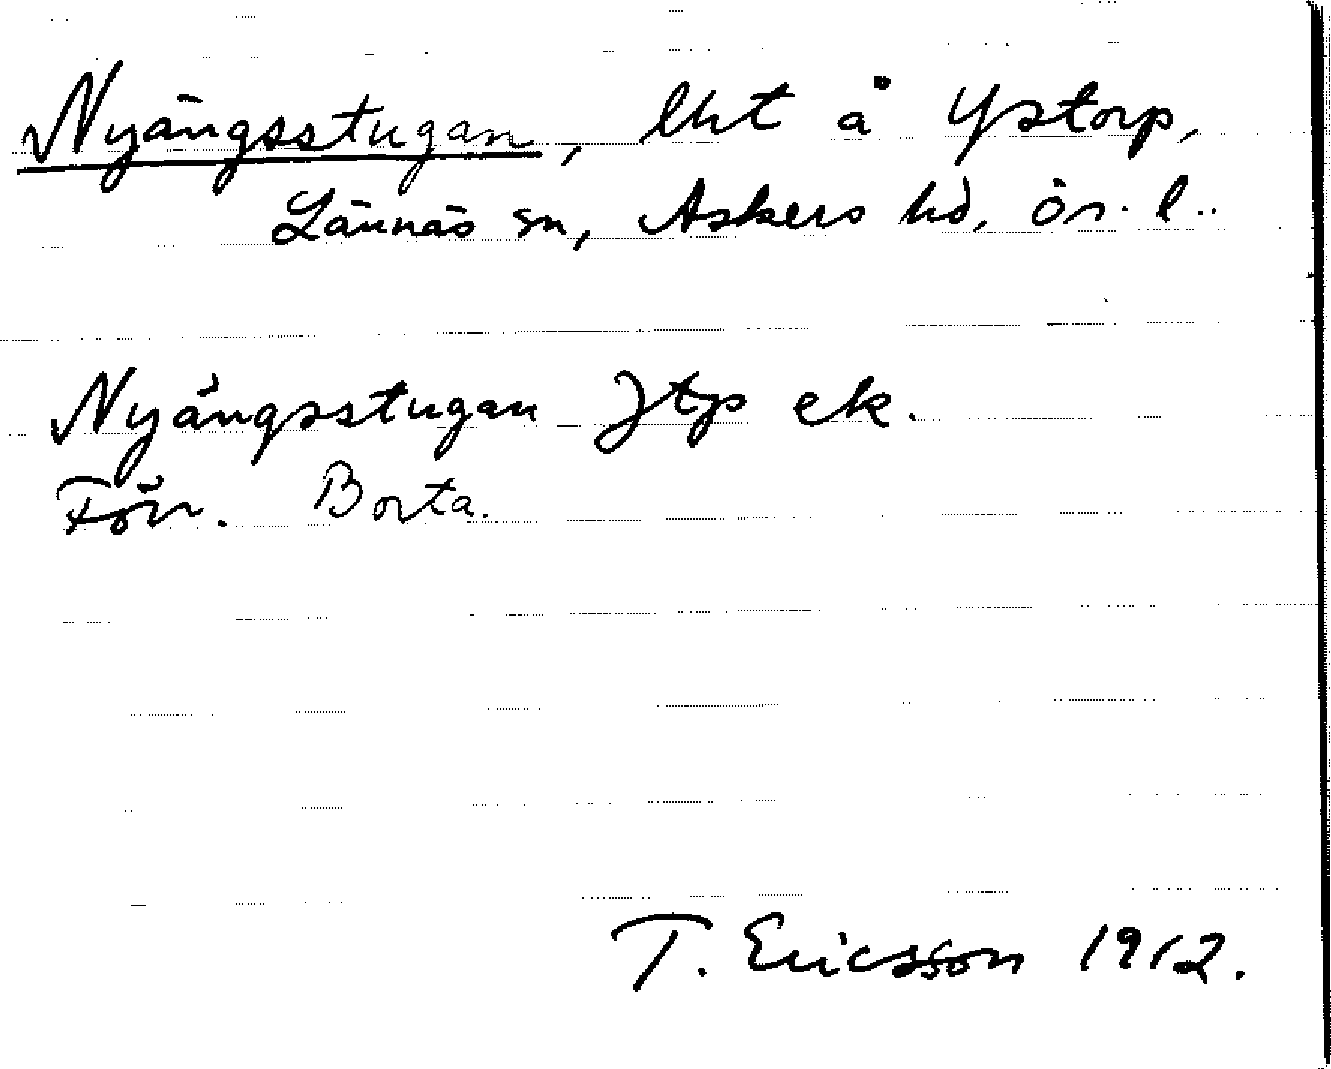 Nyängsstugan, lht å Ystorp,
Lännäs sn, Askers hd, ör. l..
Nyängsstugan Jtp ek.
Förr. Borta.
T. Ericsson 1912.